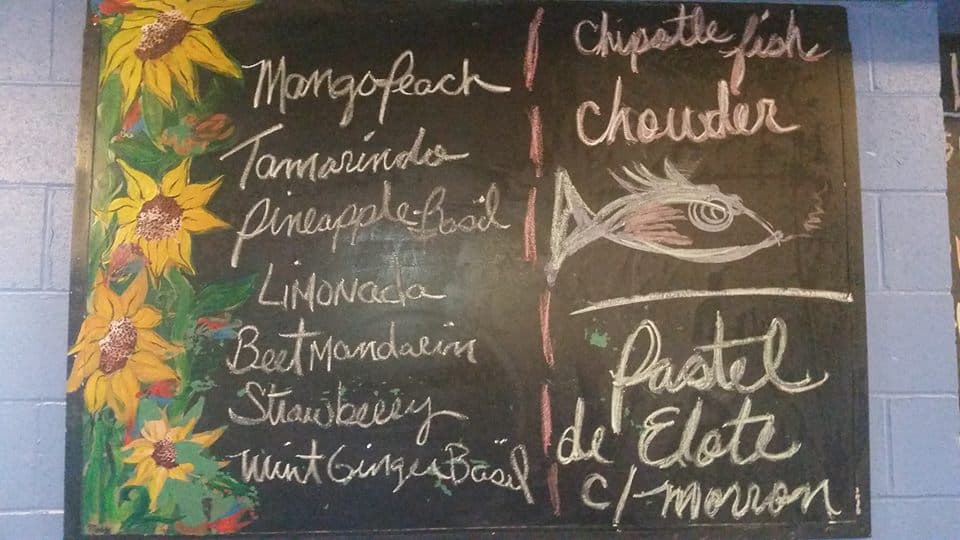 Mango peach
Tamarindo
pineapple-Basil
LiMONada
Beet Mandarin
Strawberry
Mint Ginger Basil
Chipotle fish
Chowder
Pastel
de Elote
c/ morron